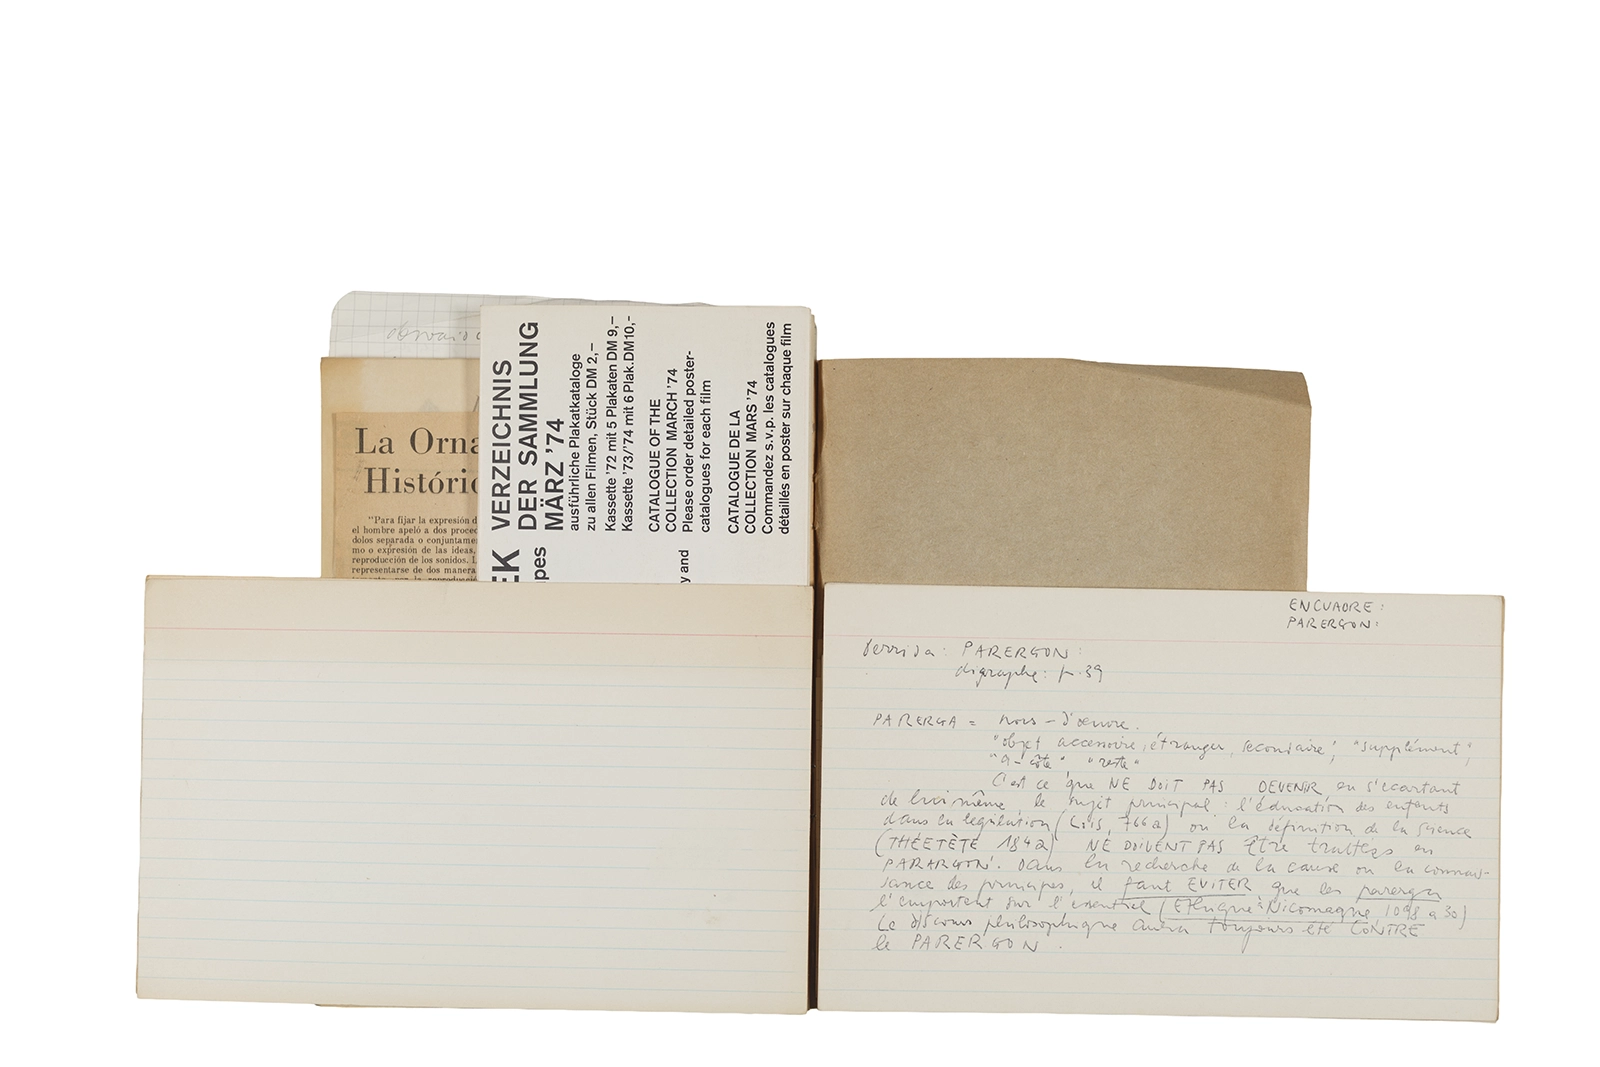 La Orna
Históric
"Para fijar la expresión d
el hombre apeló a dos proced
dolos separada o conjuntame
mo o expresión de las ideas,
reproducción de los sonidos. L
representarse de dos manera
EK VERZEICHNIS
DER SAMMLUNG
MÄRZ '74
ausführliche Plakatkataloge
zu allen Filmen, Stück DM 2,–
Kassette '72 mit 5 Plakaten DM 9,–
Kassette '73/'74 mit 6 Plak.DM10,–
CATALOGUE OF THE
COLLECTION MARCH '74
Please order detailed poster-
catalogues for each film
CATALOGUE DE LA
COLLECTION MARS '74
Commandez s.v.p. les catalogues
détaillés en poster sur chaque film
pes
y and
ENCUADRE:
PARERGON:
Derrida: PARERGON:
digraphe: p.39
PARERGA = hors-d'œuvre.
"objet accessoire, étranger, secondaire", "supplément",
"à-côté" "reste"
C'est ce que NE DOIT PAS DEVENIR en s'écartant
de lui même, le sujet principal: l'éducation des enfants
dans la législation (Lois, 766a) ou la définition de la science
(THÉETÈTE 184a) NE DOIVENT PAS être traitées en
PARARGON. Dans la recherche de la cause ou la connais-
sance des principes, il faut EVITER que les parerga
l'emportent sur l'essentiel (Ethique à Nicomaque, 1098 a 30)
Le discours philosophique aura toujours été CONTRE
le PARERGON.